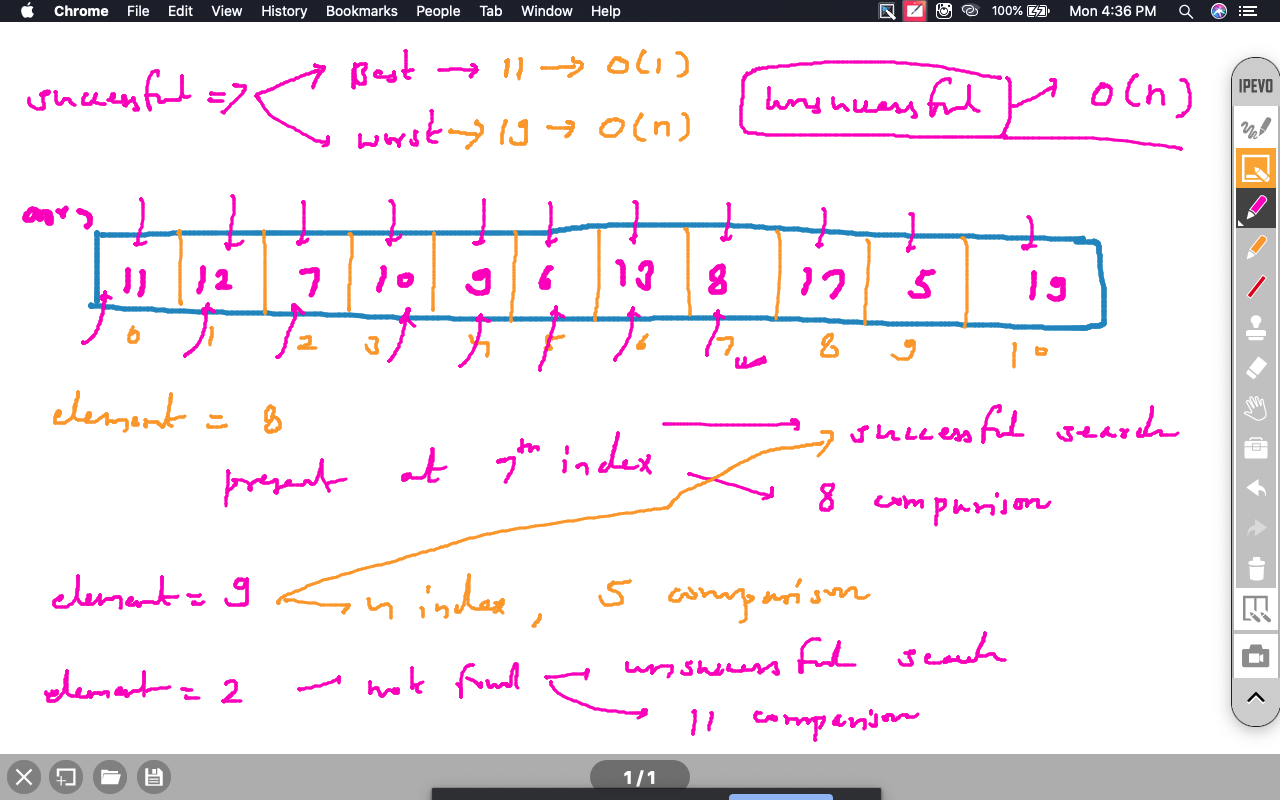 Chrome File Edit View History Bookmarks People Tab Window Help 100% Mon 4:36 PM
IPEVO
successful => Best → 11 → O(1)
worst → 19 → O(n)
unsuccessful → O(n)
arr
11 12 7 10 9 6 13 8 17 5 19
0 1 2 3 4 5 6 7 8 9 10
element = 8
present at 7th index → successful search
8 comparison
element = 9 → 4 index, 5 comparison
element = 2 – not found → unsuccessful search
11 comparison
1/1